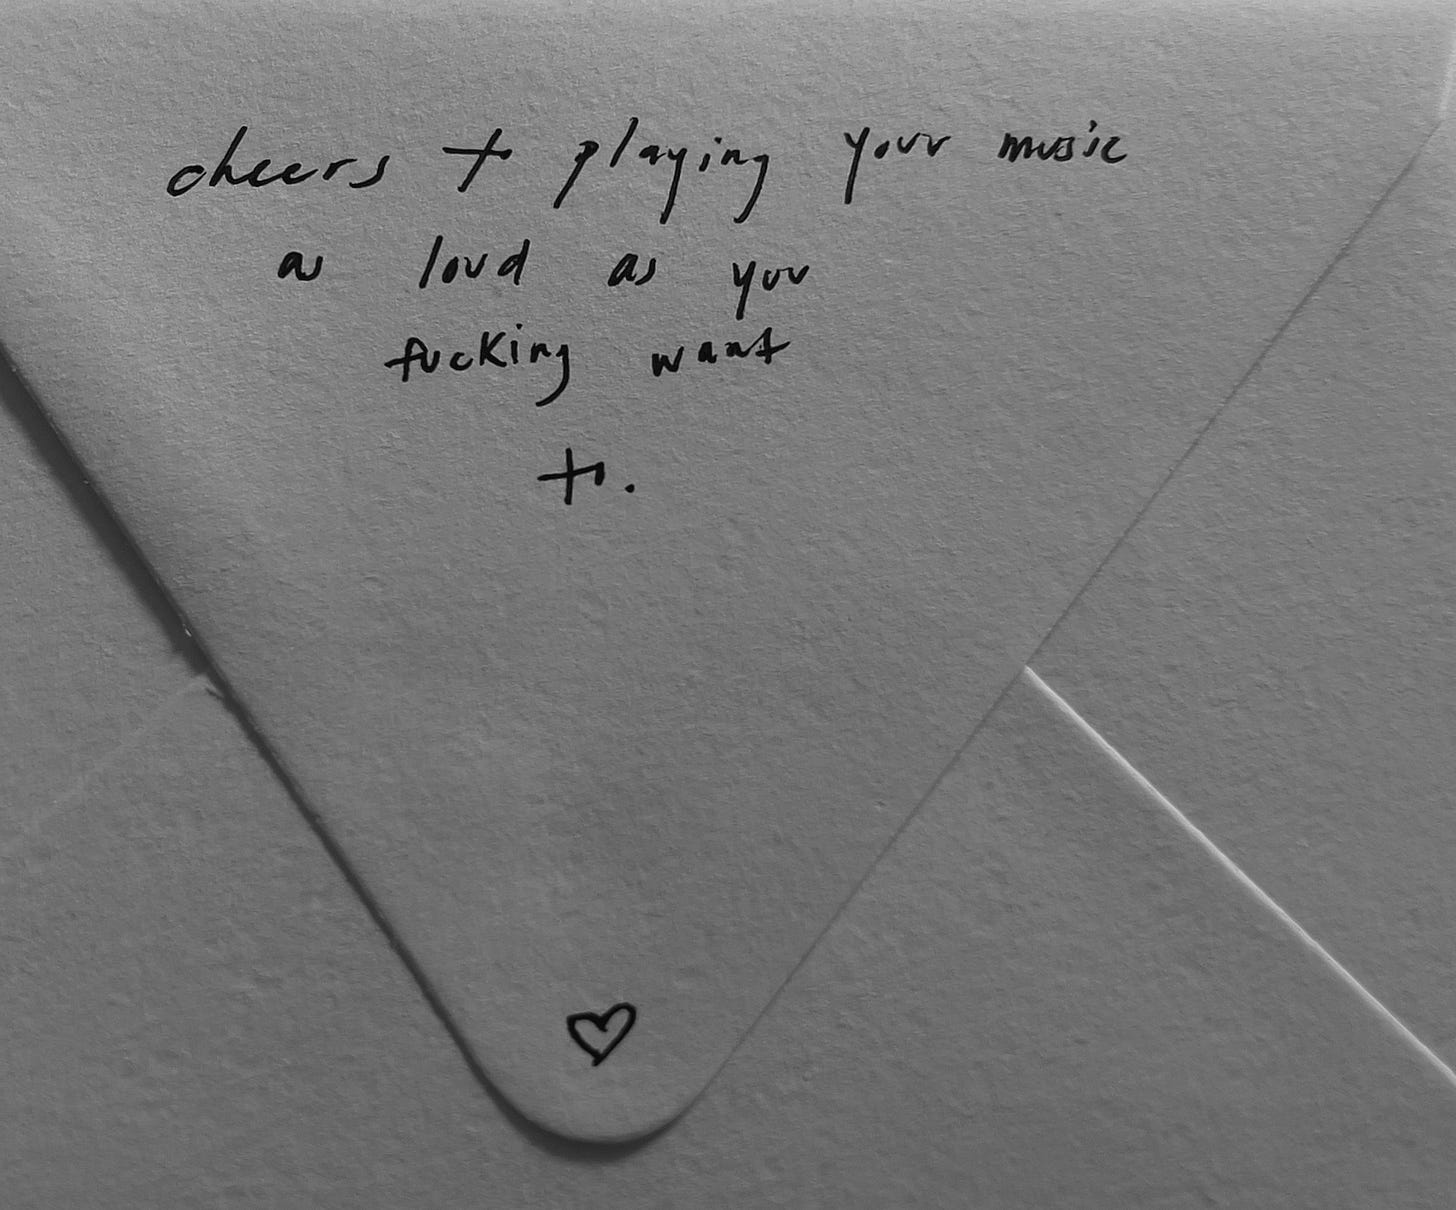 cheers to playing your music
as loud as you
fucking want
to.